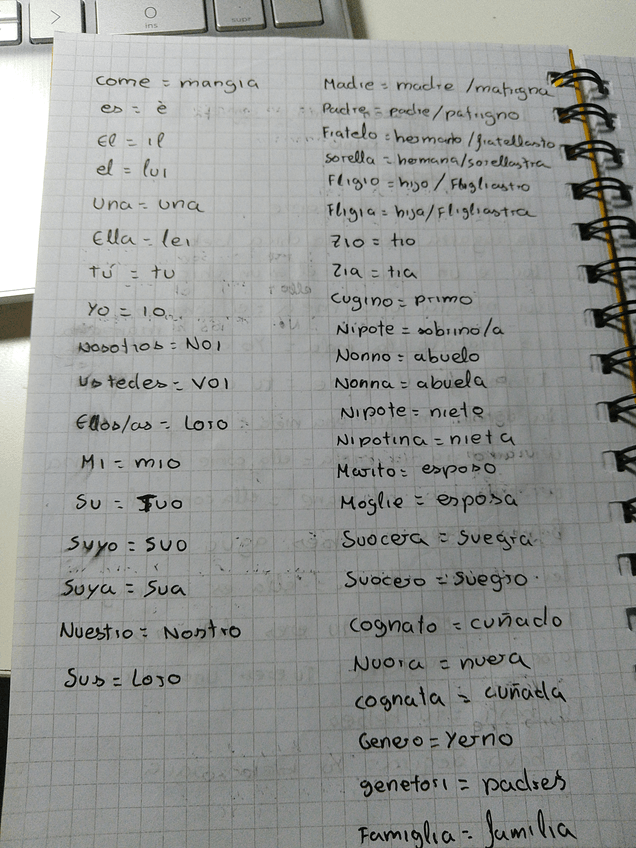 ins
come = mangia
es = è
El = il
el = lui
Una = una
Ella = lei
tú = tu
Yo = io
Nosotros = NOI
Ustedes = VOI
Ellos/as = Loro
Mi = mio
Su = Tuo
Suyo = suo
Suya = Sua
Nuestro = Nostro
Sus = Loro
Madre = madre /matrigna
Padre = padre/patrigno
Fratelo = hermano/fratellasto
Sorella = hermana/sorellastra
Fligio = hijo/ Fligliastro
Fligia = hija/Fligliastra
Zio = tio
Zia = tia
Cugino = primo
Nipote = sobrino/a
Nonno = abuelo
Nonna = abuela
Nipote = nieto
Nipotina = nieta
Marito = esposo
Moglie = esposa
Suocera = Suegra
Suocero = Suegro
Cognato = cuñado
Nuora = nuera
cognata = cuñada
Genero = Yerno
genetori = padres
Famiglia = familia